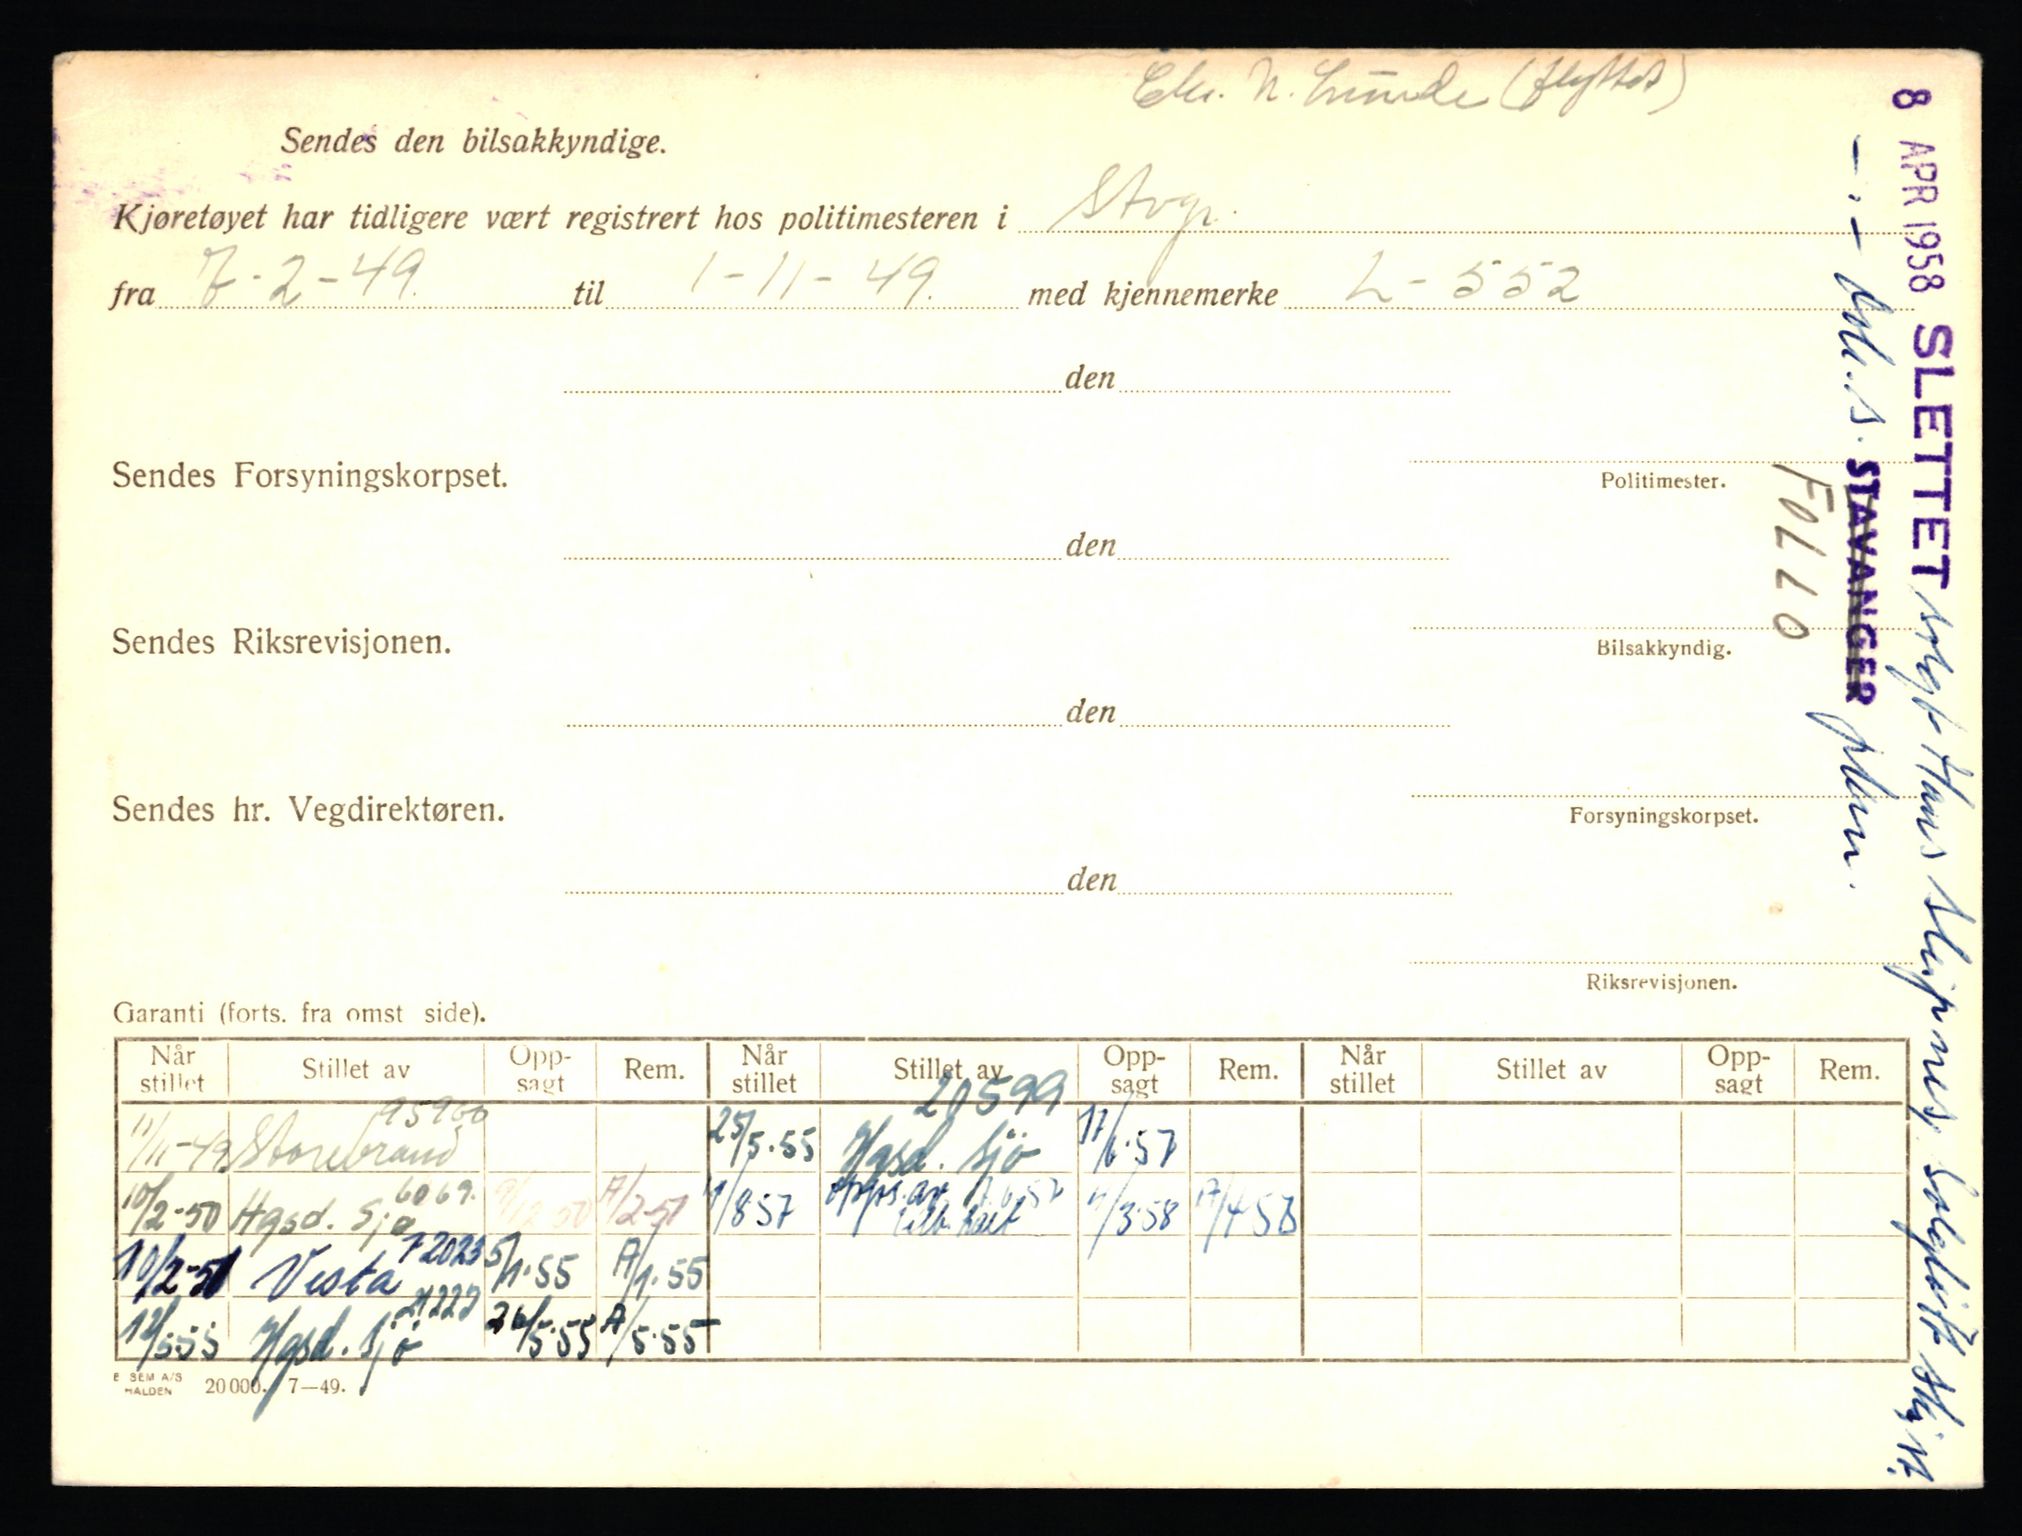 Chr. N. Lunde (flyttet)
Sendes den bilsakkyndige.
Kjøretøyet har tidligere vært registrert hos politimesteren i Stvgr.
fra 7-2-49. til 1-11-49. med kjennemerke L-552
den
Sendes Forsyningskorpset.
Politimester.
den
Sendes Riksrevisjonen.
Bilsakkyndig.
den
Sendes hr. Vegdirektøren.
Forsyningskorpset.
den
Riksrevisjonen.
Garanti (forts. fra omst side).
Når stillet Stillet av Opp-sagt Rem. Når stillet Stillet av Opp-sagt Rem. Når stillet Stillet av Opp-sagt Rem.
11/11-49 Storebrand 95900 25/5.55 Hgsd. Sjö 20599 17/6.57
10/2-50 Hgsd. Sjø 6069. 9/12 50 A/2-51 1/8 57 Opps. av 17.6.57 tilb. kalt 11/3.58 A/4 58
10/2-51 Vesta 72023 5/1.55 A/1.55
12/5 55 Hgsd. Sjö 21222 26/5.55 A/5.55
E SEM A/S
HALDEN 20000. 7—49.
8 APR 1958 SLETTET solgt Hans Sleipnes. Solgløtt Ski st.
- . - dok. s. STAVANGER pkm.
FOLLO